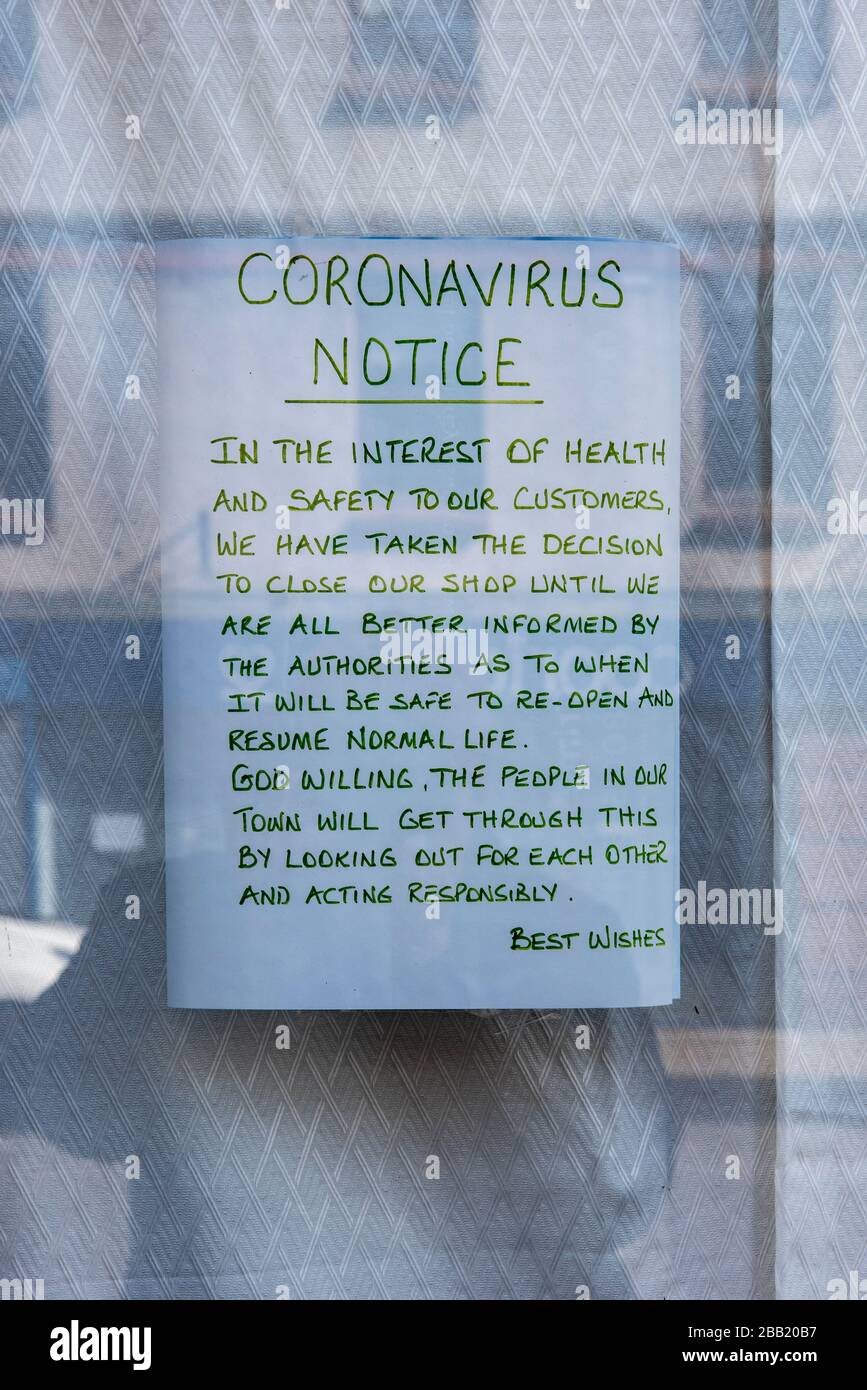 CORONAVIRUS
NOTICE
IN THE INTEREST OF HEALTH
AND SAFETY TO OUR CUSTOMERS,
WE HAVE TAKEN THE DECISION
TO CLOSE OUR SHOP UNTIL WE
ARE ALL BETTER INFORMED BY
THE AUTHORITIES AS TO WHEN
IT WILL BE SAFE TO RE-OPEN AND
RESUME NORMAL LIFE.
GOD WILLING, THE PEOPLE IN OUR
TOWN WILL GET THROUGH THIS
BY LOOKING OUT FOR EACH OTHER
AND ACTING RESPONSIBLY.
BEST WISHES
alamy
Image ID: 2BB20B7
www.alamy.com